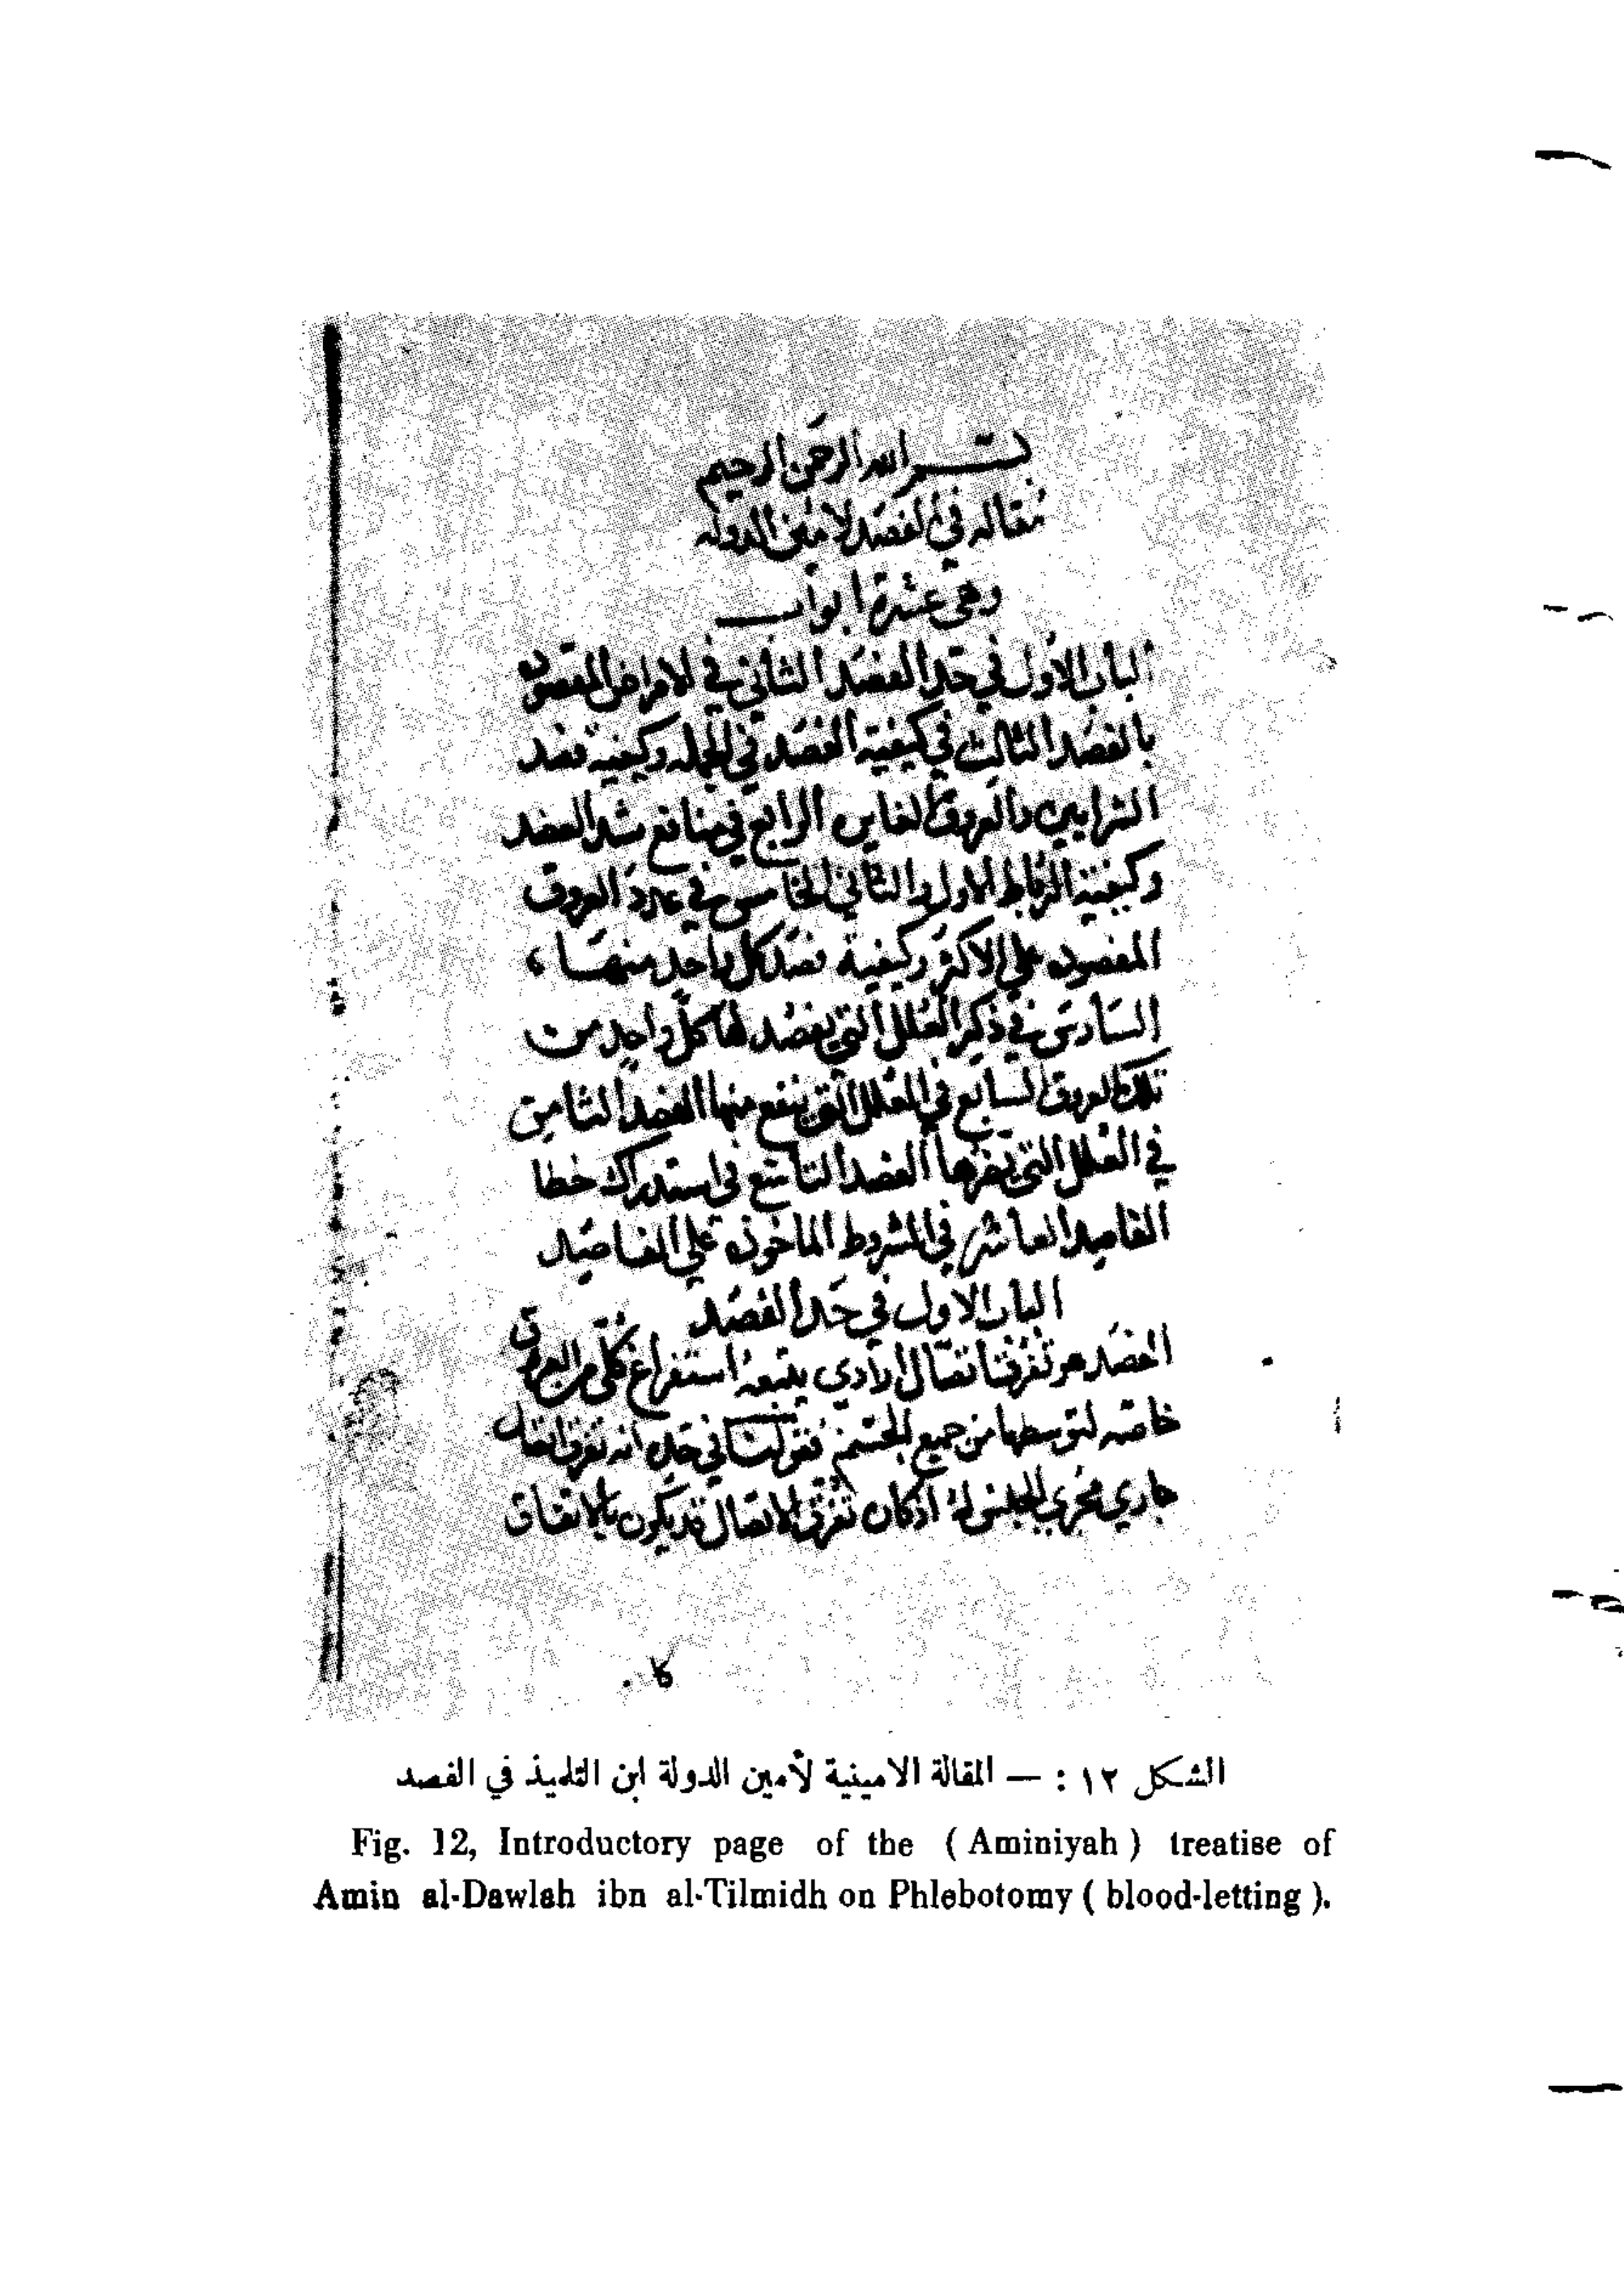 بسم الله الرحمن الرحيم
مقاله في الفصد لامين الدوله
وهي عشرة ابواب
الباب الاول في حد الفصد الثاني في الامراض المقصود
بالفصد الثالث في كيفية الفصد في الجمله وكيفية فصد
الشرايين والعروق الرابع في منافع شد العضد
وكيفية الرباط الاول والثاني الخامس في عدد العروق
المفصوده على الاكثر وكيفية فصد كل واحد منها
السادس في ذكر العلل التي يفصد لها كل واحد من
تلك العروق السابع في العلل التي ينفع منها الفصد الثامن
في العلل التي يضرها الفصد التاسع في استدراك خطا
الفاصد العاشر في الشروط الماخوذه على الفاصد
الباب الاول في حد الفصد
الفصد هو تفرق اتصال ارادي يتبعه استفراغ كلي من العروق
خاصه لتوسطها من جميع الجسم فقولنا في حده انه تفرق اتصال
جاري مجرى الجنس له اذ كان تفرق الاتصال قد يكون بالاتفاق
الشكل ١٢ : — المقالة الامينية لأمين الدولة ابن التلميذ في الفصد
Fig. 12, Introductory page of the ( Aminiyah ) treatise of
Amin al-Dawlah ibn al-Tilmidh on Phlebotomy ( blood-letting ).